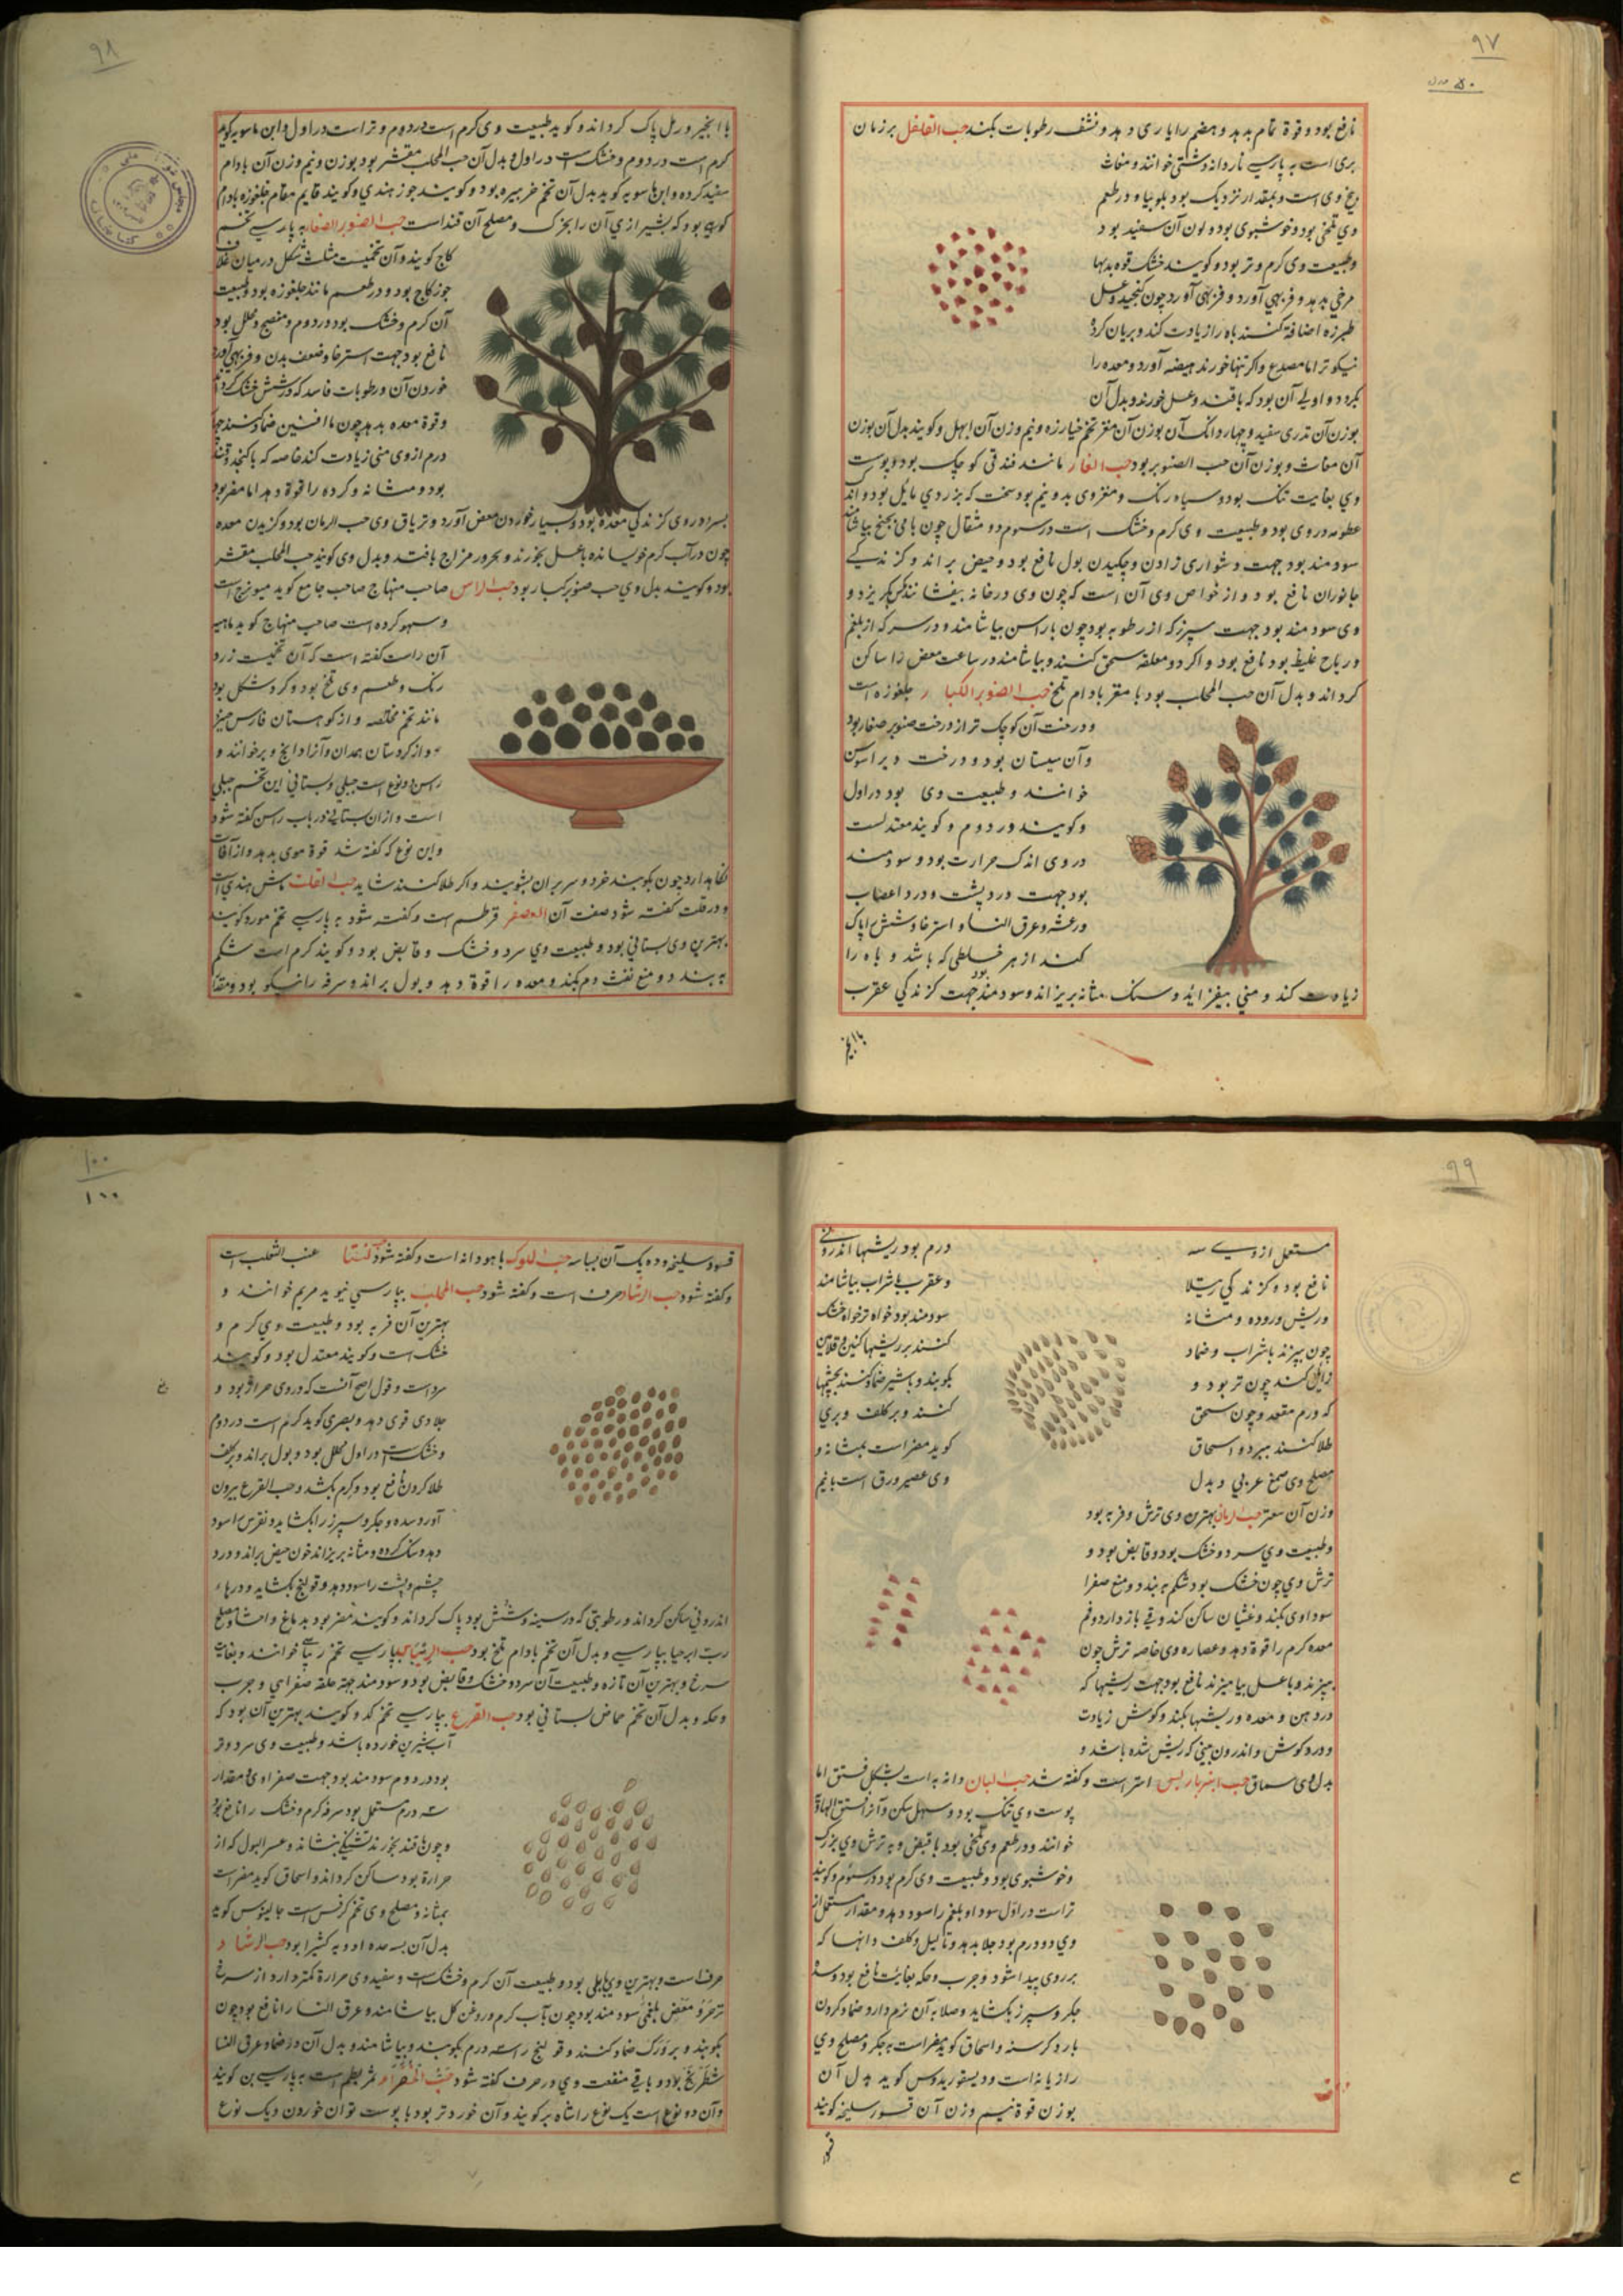 ۹۷
نافع بود و قوة تمام بدهد و هضم را یاری دهد و نشف رطوبات بکند حب القلقل بر زمان
بری است به پارسی ناردانه دشتی خوانند و مغاث
بیخ وی است و بمقدار نزدیک بود بلوبیا و در طعم
وی تلخی بود و خوشبوی بود و لون آن سفید بود
و طبیعت وی گرم و تر بود و گویند خشک قوه بدنها
مرخی بدهد و فربهی آورد و فربهی آورد چون کنجید و عسل
طبرزد اضافة کنند باه را زیادت کند و بریان کرده
نیکوتر اما مصدع و اگر تنها خورند هیضه آورد و معده را
بگردد و اولی آن بود که با قند و عسل خورند و بدل آن
بوزن آن تدری سفید و چهار دانگ آن بوزن آن مغز تخم خیارزه و نیم وزن آن ابهل و گویند بدل آن بوزن
آن مغاث و بوزن آن حب الصنوبر بود حب الغار مانند فندقی کوچک بود و پوست
وی بغایت تنک بود و سیاه رنگ و مغز وی بدو نیم بود سخت که بزردی مایل بود و اندک
عطریه در وی بود و طبیعت وی گرم و خشک است در سوم دو مثقال چون
سودمند بود جهت دشواری زادن و چکیدن بول نافع بود و حیض براند و گزندگی
جانوران نافع بود و از خواص وی آن است که چون وی در خانه بیفشانند مگس بگریزد و
وی سودمند بود جهت سپرز که از رطوبه بود چون باراسن بیاشامند و درد سر که از بلغم
و ریاح غلیظ بود نافع بود و اگر دو معلقه سحق کنند و بیاشامند در ساعت مغص را ساکن
گرداند و بدل آن حب المحلب بود با مغز بادام تلخ حب الصنوبر الکبار جلغوزه است
و درخت آن کوچک تر از درخت صنوبر صغار بود
و آن سیستان بود و درخت ویرا سوس
خوانند و طبیعت وی بود در اول
و گویند در دوم و گویند معتدلست
در وی اندک حرارت بود و سودمند
بود جهت درد پشت و درد اعصاب
و رعشه و عرق النسا و استرخا و شش را پاک
کند از هر خلطی که باشد و باه را
زیادت کند و منی بیفزاید و سنگ مثانه بریزاند و سودمند بود جهت گزندگی عقرب
با انجیر
۹۸
با انجیر و رمل پاک گرداند و گوید طبیعت وی گرم است در دوم و تر است در اول و ابن ماسویه گوید
گرم است در دوم و خشک است در اول و بدل آن حب المحلب مقشر بود بوزن و نیم وزن آن بادام
سفید کرده و ابن ماسویه گوید بدل آن تخم خربیزه بود و گویند جوز هندی و گویند قایم مقام جلغوزه بادام
کوهی بود که بشیرازی آن را بخرک و مصلح آن قند است حب الصنوبر الصغار به پارسی تخم
کاج گویند و آن تخمیست مثلث شکل در میان غلاف
جوز کاج بود و در طعم مانند جلغوزه بود و طبیعت
آن گرم و خشک بود در دوم و منضج و محلل بود
نافع بود جهت استرخا و ضعف بدن و فربهی آورد
خوردن آن و رطوبات فاسد که در شش خشک گرداند
و قوة معده بدهد چون با افسنتین ضماد کنند
درم از وی منی زیادت کند خاصه که با کنجد و قند
بود و مثانه و گرده را قوة دهد اما مضر بود
بسر و در وی گزندگی معده بود و بسیار خوردن مغص آورد و تریاق وی حب الرمان بود و گزیدن معده
چون در آب گرم خویسانده با عسل بخورند و محرور مزاج با قند و بدل وی گویند حب المحلب مقشر
بود و گویند بدل وی حب صنوبر کبار بود حب الراس صاحب منهاج صاحب جامع گوید میویزج است
و سهو کرده است صاحب منهاج گوید
آن راست گفته است که آن تخمیست زرد
رنگ و طعم وی تلخ بود و گرد شکل بود
مانند تخم مخلصه و از کوهستان فارس خیزد
و از کردستان همدان و آنرا دانج و برخوانند و
راسن دو نوع است جبلی و بستانی این تخم جبلی
است و از آن بستانی در باب راسن گفته شود
و این نوع که گفته شد قوة موی بدهد و از آفات
نگاه دارد چون بکوبند خرد و سر بر آن بشویند و اگر طلا کنند شاید حب القلت ماش هندی است
و در قلت گفته شود صفت آن العصفر قرطم است و گفته شود به پارسی تخم مورد گویند
بهترین وی بستانی بود و طبیعت وی سرد و خشک و قابض بود و گویند گرم است شکم
به بندد و منع نفث دم بکند و معده را قوة دهد و بول براند و سرفه را نیکو بود و مقدار
۹۹
مستعمل از وی سه درم بود ریشها اندرونی
نافع بود و گزندگی رتیلا و عقرب با شراب بیاشامند
و ریش روده و مثانه سودمند بود خواه تر خواه خشک
چون بپزند با شراب و ضماد کنند بر ریشها
زایل کند چون تر بود و بکوبند و با شیر ضماد کنند بچشمها
که درم مقعد و چون سحق کنند و بر کلف و بری
طلا کنند ببرد و اسحاق گوید مضر است بمثانه و
مصلح وی صمغ عربی و بدل وی عصیر ورق است با نیم
وزن آن سعتر حب الرمان بهترین وی ترش و فربه بود
و طبیعت وی سرد و خشک بود و قابض بود و
ترش وی چون خشک بود شکم به بندد و منع صفرا
سوداوی بکند و غثیان ساکن کند و قی باز دارد و فم
معده گرم را قوة دهد و عصاره وی خاصه ترش چون
بپزند و با عسل بیامیزند نافع بود جهت ریشها که
در دهن و معده و ریشها بکند و گوش زیادت
و درد گوش و اندرون بینی که ریش شده باشد و
بدل وی سماق حب انبرباریس است و گفته شد حب البان و دانه به است بشکل فستق اما
پوست وی تنک بود و سهل شکن و آنرا فستق الهاوه
خوانند و در طعم وی تلخی بود با قبض و به ترش وی بزرگ
و خوشبوی بود و طبیعت وی گرم بود در سوم و گویند
تر است در اول سودا و بلغم را سود دهد و مقدار مستعمل از
وی دو درم بود جلا بدهد و ثالیل و کلف و آنها که
بر روی پیدا شود و جرب و حکه بغایت نافع بود و سده
جگر و سپرز بگشاید و صلابه آن نرم دارد و ضماد کردن
بارد کرسنه و اسحاق گوید مضر است به جگر و مصلح وی
رازیانه است و دیسقوریدوس گوید بدل آن
بوزن قوة نیم وزن آن قسور سلیخه گویند
۱۰۰
۱۰۰
قسور سلیخه و ده یک آن بسباسه حب الملوک ماهودانه است و گفته شود عنب الثعلب است
و گفته شود حب الرشاد حرف است و گفته شود حب المحلب بپارسی نیوید مریم خوانند و
بهترین آن فربه بود و طبیعت وی گرم و
خشک است و گویند معتدل بود و گویند
سرد است و قول اصح آنست که در وی حرارة بود و
جلا دی قوی دهد و بصری گوید گرم است در دوم
و خشک است در اول محلل بود و بول براند و بکلف
طلا کردن نافع بود و کرم بکشد و حب القرع بیرون
آورد و سده و جگر و سپرز را بگشاید و نقرس را سود
دهد و سنگ گرده و مثانه بریزاند خون حیض براند و درد
چشم و پشت را سود دهد و قولنج بگشاید و دردهاء
اندرونی ساکن گرداند و رطوبتی که در سینه و شش بود پاک گرداند و گویند مضر بود بدماغ و احشا و مصلح
رب بپارسی و بدل آن تخم بادام تلخ بود حب الریباس بپارسی تخم ریباج خوانند و بغایت
سرخ و بهترین آن تازه و طبیعت آن سرد و خشک و قابض بود و سودمند جهة علقه صفرای و جرب
و حکه و بدل آن تخم حماض بستانی بود حب القرع بپارسی تخم کدو گویند بهترین آن بود که
آب شیرین خورده باشد و طبیعت وی سرد و تر
بود در دوم سودمند بود جهت صفراوی و مقدار
سه درم مستعمل بود سرفه گرم و خشک را نافع بود
و چون با قند بخورند تشنگی بنشاند و عسر البول که از
حرارة بود ساکن گرداند و اسحاق گوید مضر است
بمثانه و مصلح وی تخم کرفس است جالینوس گوید
بدل آن بسه عدد ادویه کثیرا بود حب الرشاد
حرف است و بهترین وی بابلی بود و طبیعت آن گرم و خشک است و سفید وی حرارة کمتر دارد از سرخ
مغص بلغمی سودمند بود چون بآب گرم و روغن گل بیاشامند و عرق النسا را نافع بود چون
بکوبند و بر ورک ضماد کنند و قولنج را سه درم بکوبند و بیاشامند و بدل آن در ضماد عرق النسا
شیطرج بود و باقی منفعت وی در حرف گفته شود حب الخضراء ثمر بطم است به پارسی بن گویند
و آن دو نوع است یک نوع را شاه بر گویند و آن خوردتر بود با پوست توان خوردن و یک نوع